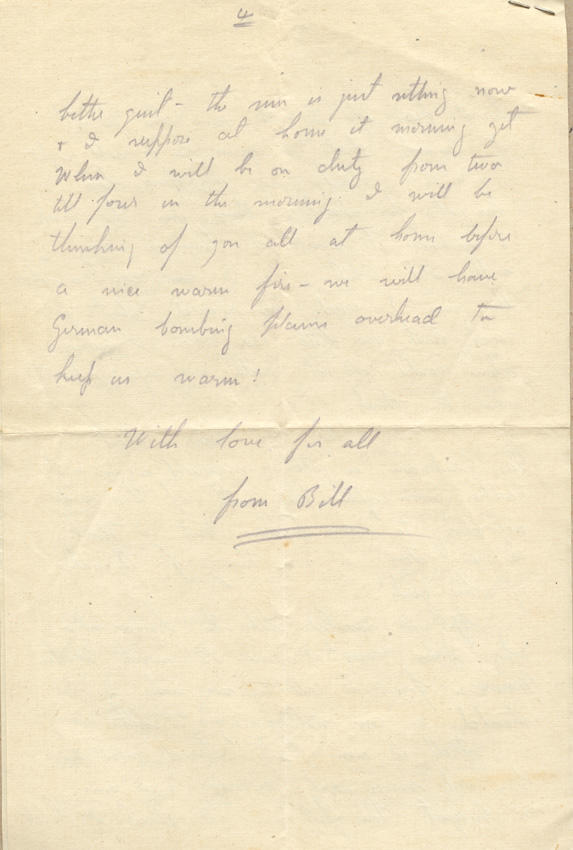 4
the sun is just setting now
& I suppose at home it morning yet
When I will be on duty from two
till four in the morning I will be
thinking of you all at home before
a nice warm fire - we will have
German bombing plains overhead to
keep us warm!
With love for all
from Bill